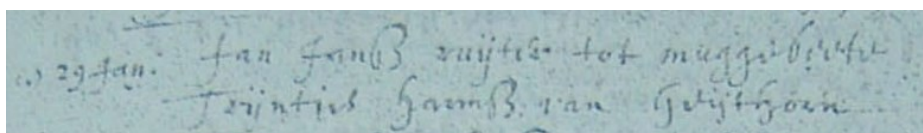 29 Jan. Jan Janß ruyter tot muggebeete
Trÿnties Harmß van Geÿthorn